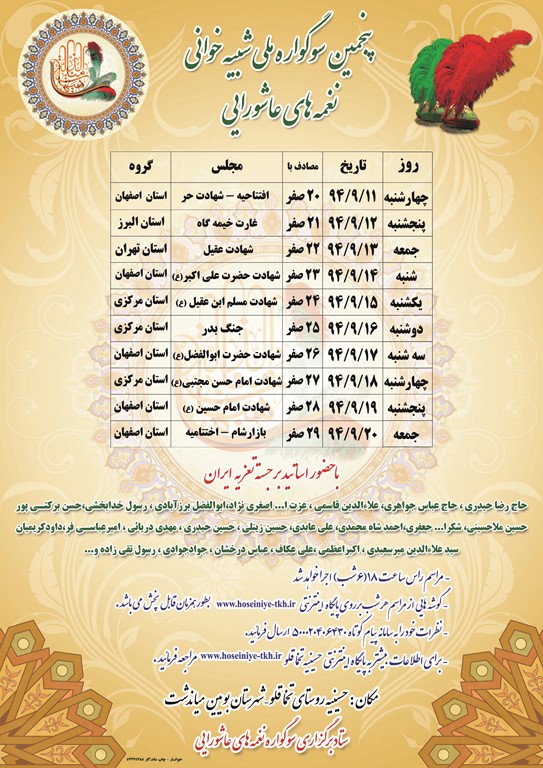 پنجمین سوگواره ملی شبیه خوانی
نغمه های عاشورایی
روز | تاریخ | مصادف با | مجلس | گروه
چهارشنبه | ۹۴/۹/۱۱ | ۲۰ صفر | افتتاحیه – شهادت حر | استان اصفهان
پنجشنبه | ۹۴/۹/۱۲ | ۲۱ صفر | غارت خیمه گاه | استان البرز
جمعه | ۹۴/۹/۱۳ | ۲۲ صفر | شهادت عقیل | استان تهران
شنبه | ۹۴/۹/۱۴ | ۲۳ صفر | شهادت حضرت علی اکبر(ع) | استان اصفهان
یکشنبه | ۹۴/۹/۱۵ | ۲۴ صفر | شهادت مسلم ابن عقیل (ع) | استان مرکزی
دوشنبه | ۹۴/۹/۱۶ | ۲۵ صفر | جنگ بدر | استان مرکزی
سه شنبه | ۹۴/۹/۱۷ | ۲۶ صفر | شهادت حضرت ابوالفضل(ع) | استان اصفهان
چهارشنبه | ۹۴/۹/۱۸ | ۲۷ صفر | شهادت امام حسن مجتبی(ع) | استان مرکزی
پنجشنبه | ۹۴/۹/۱۹ | ۲۸ صفر | شهادت امام حسین (ع) | استان اصفهان
جمعه | ۹۴/۹/۲۰ | ۲۹ صفر | بازارشام – اختتامیه | استان اصفهان
با حضور اساتید برجسته تعزیه ایران
حاج رضا حیدری ، حاج عباس جواهری، علاءالدین قاسمی ، عزت ا... اصغری نژاد، ابوالفضل برزآبادی ، رسول خدابخشی،حسن برکتی پور
حسین ملاحسینی، شکرا... جعفری،احمد شاه محمدی، علی عابدی، حسین زینلی ، حسین حیدری ، مهدی دریائی ، امیرعباسی فر،داودکریمیان
سید علاءالدین میرسعیدی ، اکبراعظمی ،علی عکاف، عباس درخشان ، جوادجوادی ، رسول نقی زاده و...
- مراسم راس ساعت ۱۸ (۶شب) اجرا خواهد شد
- گوشه هایی از مراسم هر شب بر روی پایگاه اینترنتی www.hoseiniye-tkh.ir بطور همزمان قابل پخش می باشد .
- نظرات خود را به سامانه پیام کوتاه ۵۰۰۰۲۰۴۰۶۴۳۰ ارسال فرمائید.
- برای اطلاعات بیشتر به پایگاه اینترنتی حسینیه تخماقلو www.hoseiniye-tkh.ir مراجعه فرمائید .
مکان : حسینیه روستای تخماقلو شهرستان بویین میاندشت
ستاد برگزاری سوگواره نغمه های عاشورایی
خوانسار - چاپ ماندگار